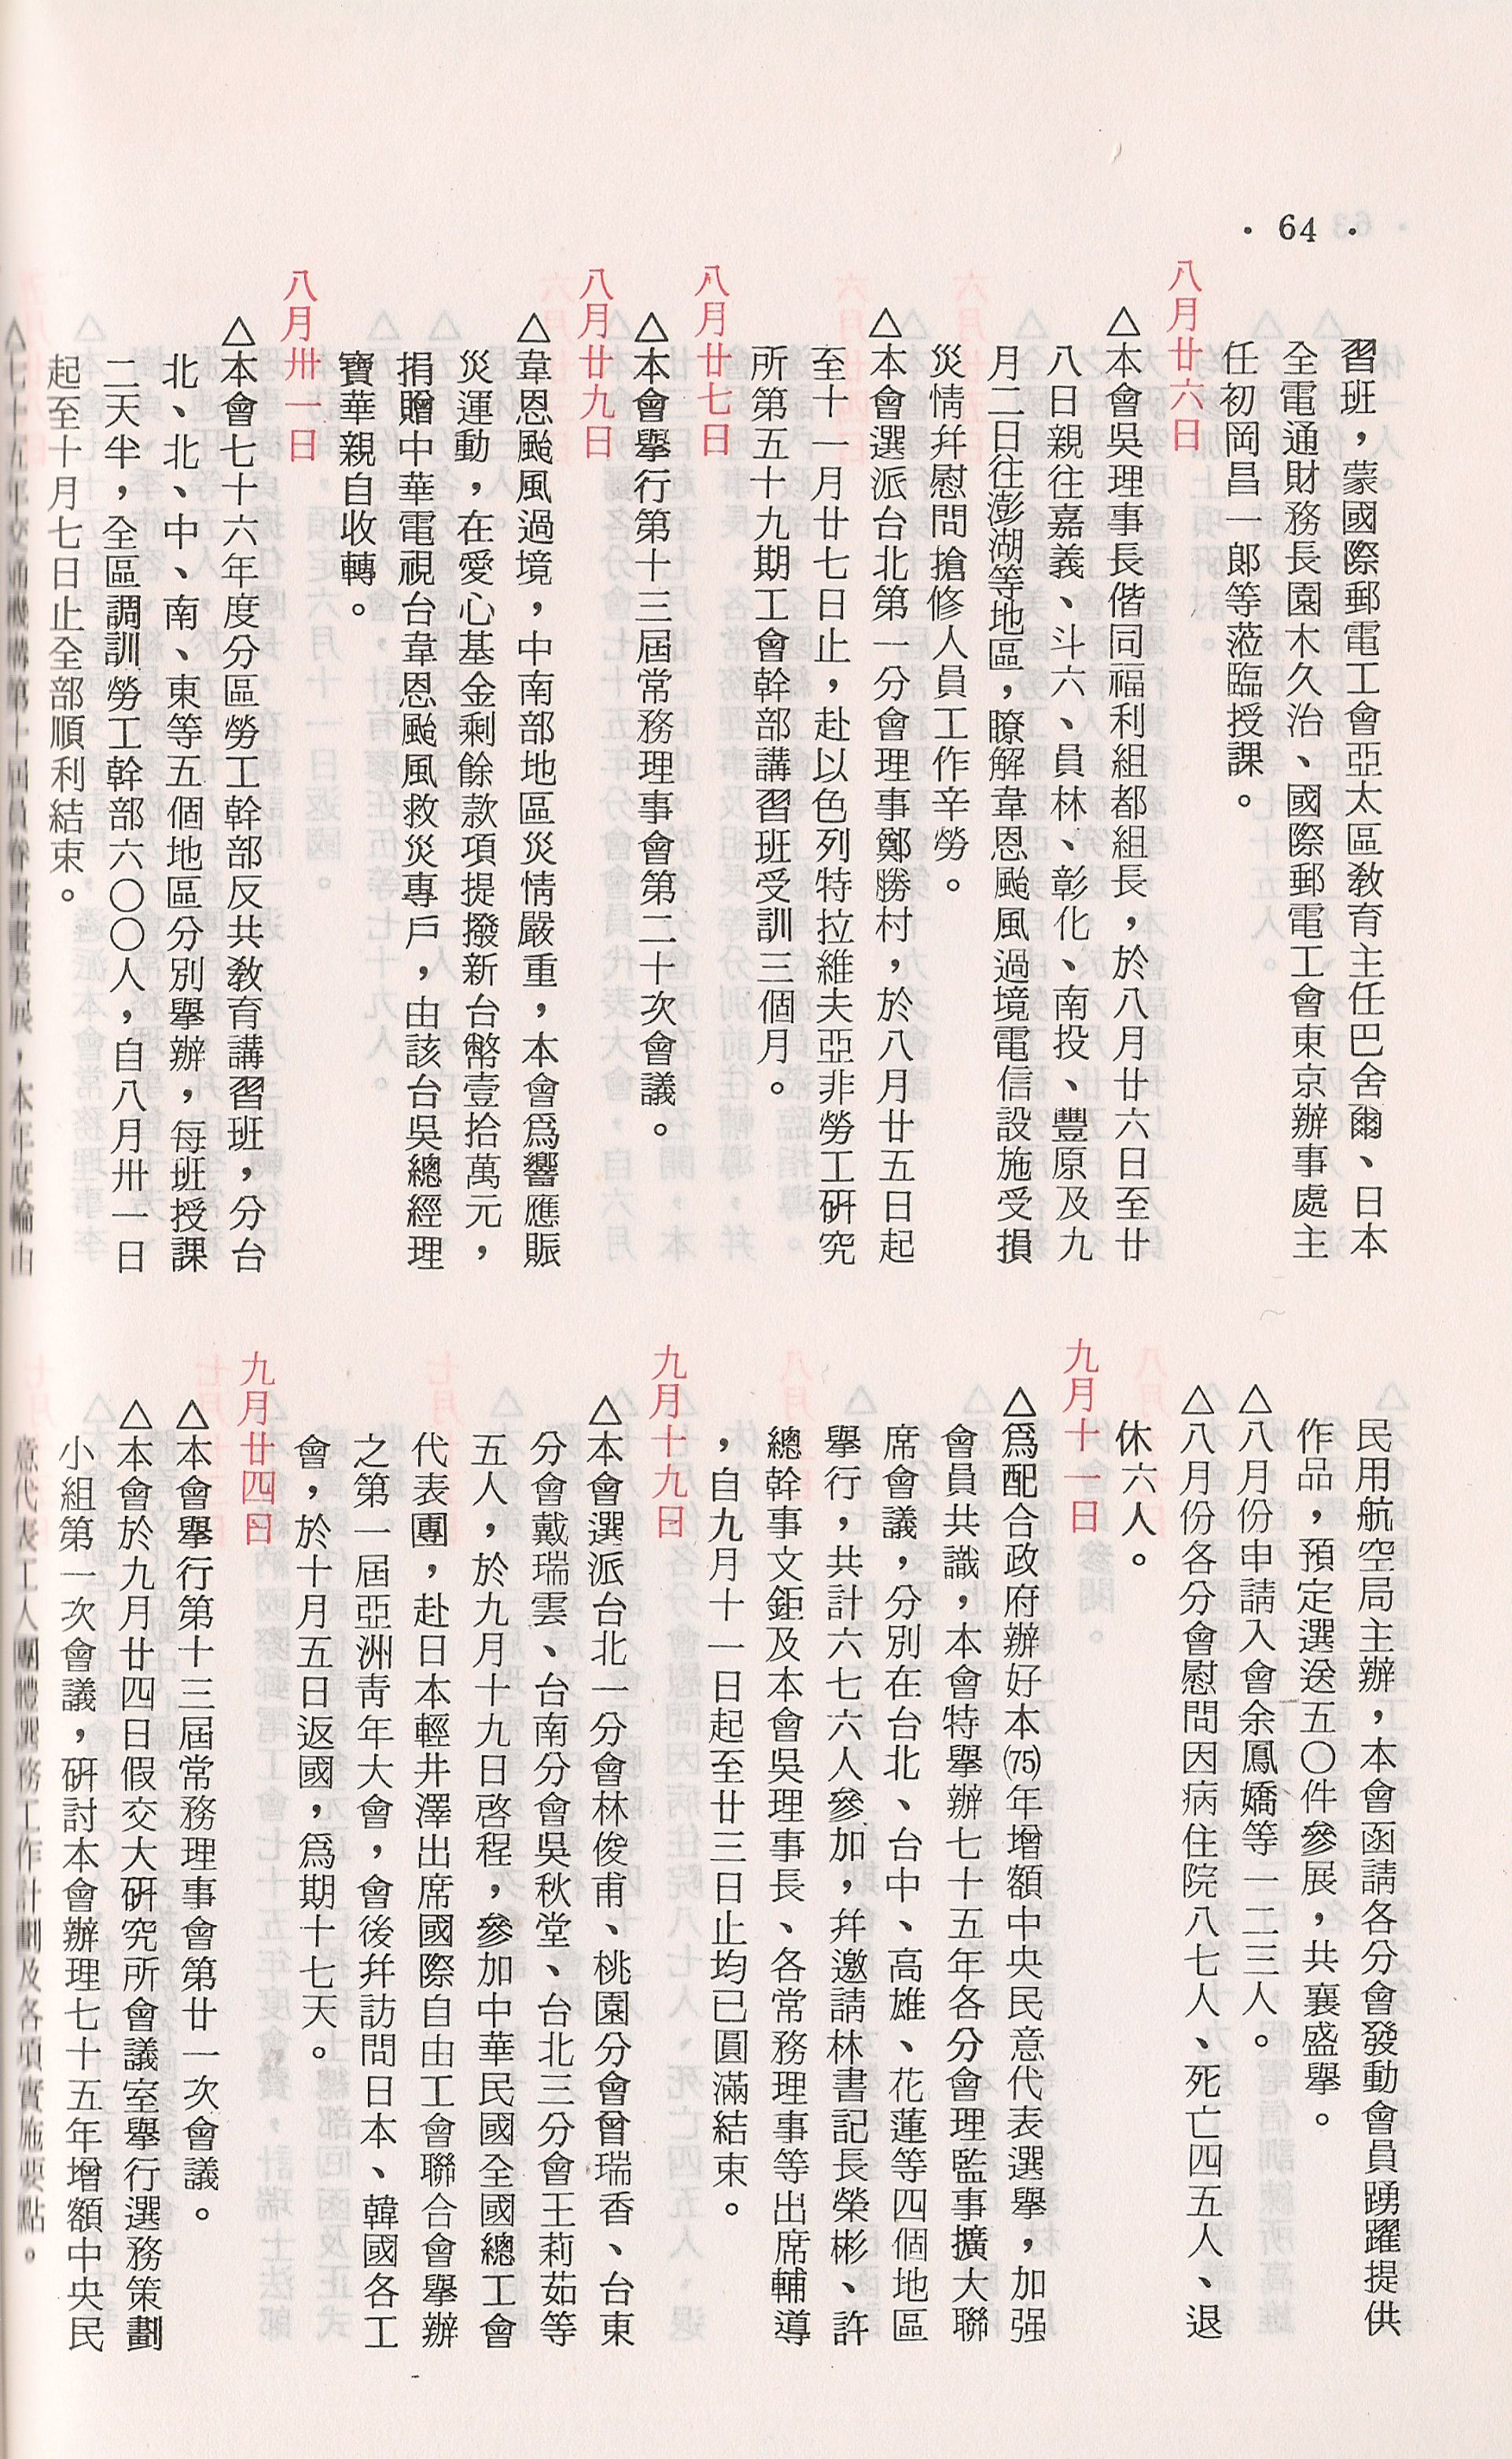 · 64 ·
習班，蒙國際郵電工會亞太區教育主任巴舍爾、日本
全電通財務長園木久治、國際郵電工會東京辦事處主
任初岡昌一郞等蒞臨授課。
八月廿六日
△本會吳理事長偕同福利組都組長，於八月廿六日至廿
八日親往嘉義、斗六、員林、彰化、南投、豐原及九
月二日往澎湖等地區，瞭解韋恩颱風過境電信設施受損
災情幷慰問搶修人員工作辛勞。
△本會選派台北第一分會理事鄭勝村，於八月廿五日起
至十一月廿七日止，赴以色列特拉維夫亞非勞工硏究
所第五十九期工會幹部講習班受訓三個月。
八月廿七日
△本會舉行第十三屆常務理事會第二十次會議。
八月廿九日
△韋恩颱風過境，中南部地區災情嚴重，本會爲響應賑
災運動，在愛心基金剩餘款項提撥新台幣壹拾萬元，
捐贈中華電視台韋恩颱風救災專戶，由該台吳總經理
寶華親自收轉。
八月卅一日
△本會七十六年度分區勞工幹部反共教育講習班，分台
北、北、中、南、東等五個地區分別舉辦，每班授課
二天半，全區調訓勞工幹部六〇〇人，自八月卅一日
起至十月七日止全部順利結束。
△七十五年交通機構第十屆員眷書畫美展，本年度輪由
民用航空局主辦，本會函請各分會發動會員踴躍提供
作品，預定選送五〇件參展，共襄盛擧。
△八月份申請入會余鳳嬌等一二三人。
△八月份各分會慰問因病住院八七人、死亡四五人、退
休六人。
九月十一日
△爲配合政府辦好本(75)年增額中央民意代表選擧，加强
會員共識，本會特擧辦七十五年各分會理監事擴大聯
席會議，分別在台北、台中、高雄、花蓮等四個地區
擧行，共計六七六人參加，幷邀請林書記長榮彬、許
總幹事文鉅及本會吳理事長、各常務理事等出席輔導
，自九月十一日起至廿三日止均已圓滿結束。
九月十九日
△本會選派台北一分會林俊甫、桃園分會曾瑞香、台東
分會戴瑞雲、台南分會吳秋堂、台北三分會王莉茹等
五人，於九月十九日啓程，參加中華民國全國總工會
代表團，赴日本輕井澤出席國際自由工會聯合會擧辦
之第一屆亞洲靑年大會，會後幷訪問日本、韓國各工
會，於十月五日返國，爲期十七天。
九月廿四日
△本會擧行第十三屆常務理事會第廿一次會議。
△本會於九月廿四日假交大硏究所會議室擧行選務策劃
小組第一次會議，硏討本會辦理七十五年增額中央民
意代表工人團體選務工作計劃及各項實施要點。